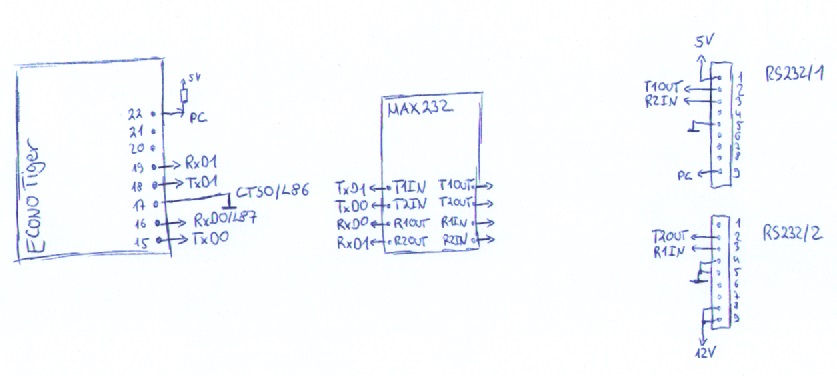 ECONO Tiger
5V
22
PC
21
20
19 RxD1
18 TxD1
17 CTS0/L86
16 RxD0/L87
15 TxD0
MAX232
TxD1 T1IN T1OUT
TxD0 T2IN T2OUT
RxD0 R1OUT R1IN
RxD1 R2OUT R2IN
5V
RS232/1
1
T1OUT 2
R2IN 3
4
5
6
7
8
PC 9
RS232/2
1
T2OUT 2
R1IN 3
4
5
6
7
8
9
12V